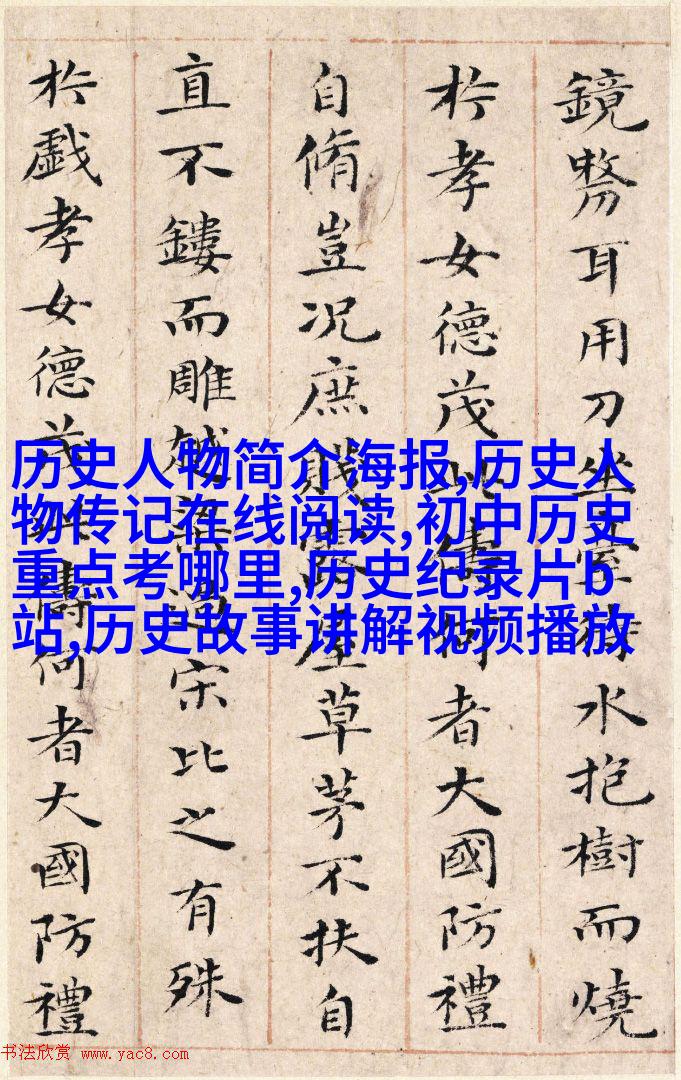 鏡剺耳用刀坐臺待水抱樹而燒
扵孝女德茂此儔何者大國防禮
自脩豈况庶賤露屋草茅不扶自
直不鏤而雕越梁過宋比之有殊
扵戯孝女德茂此儔何者大國防禮
历史人物简介海报,历史人
物传记在线阅读,初中历史
重点考哪里,历史纪录片b
站,历史故事讲解视频播放
书法欣赏 www.yac8.com